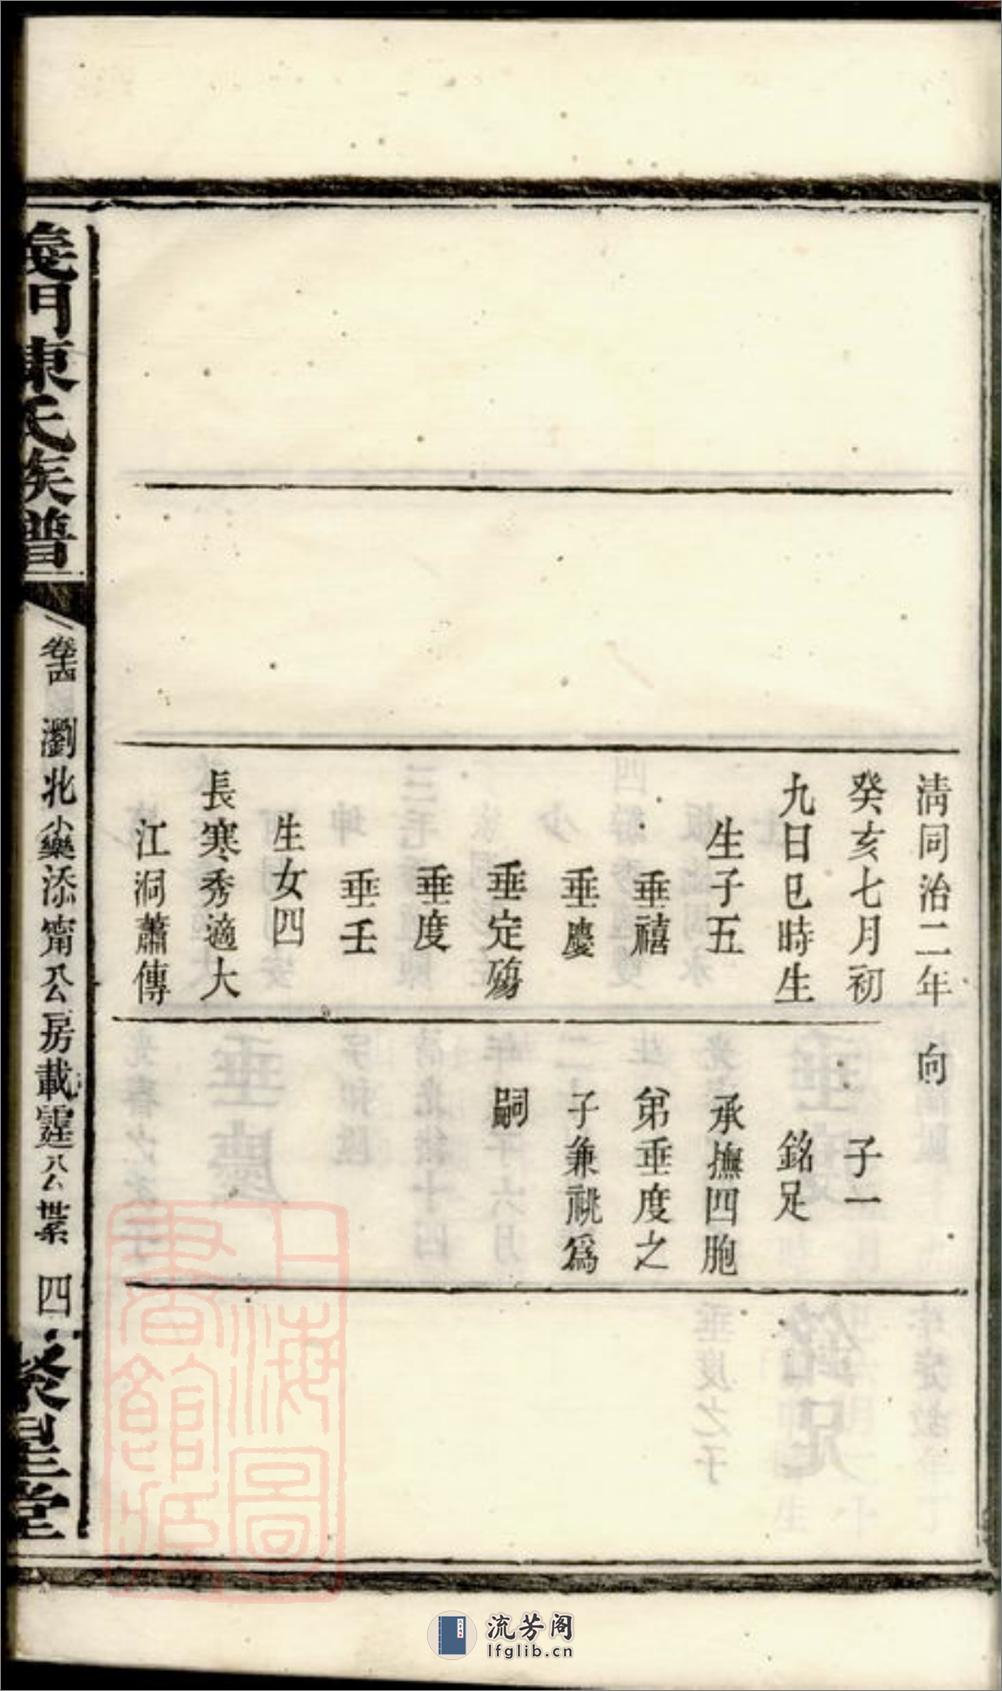 清同治二年
癸亥七月初
九日巳時生
生子五
垂禧
垂慶
垂定殤
垂度
垂壬
生女四
長寒秀適大
江洞蕭傳
向
子一
銘足
承撫四胞
弟垂度之
子兼祧爲
嗣
義門陳氏族譜
卷十四
瀏北小樂添甯公房載霆公世系
四
聚星堂
上海圖書館藏
流芳阁
lfglib.cn